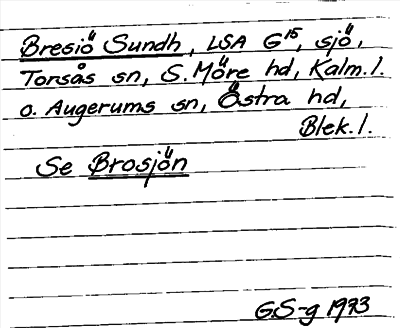 Bresiö Sundh, LSA G15, sjö,
Torsås sn, S. Möre hd, Kalm. l.
o. Augerums sn, Östra hd,
Blek. l.
Se Brosjön
GS-g 1973